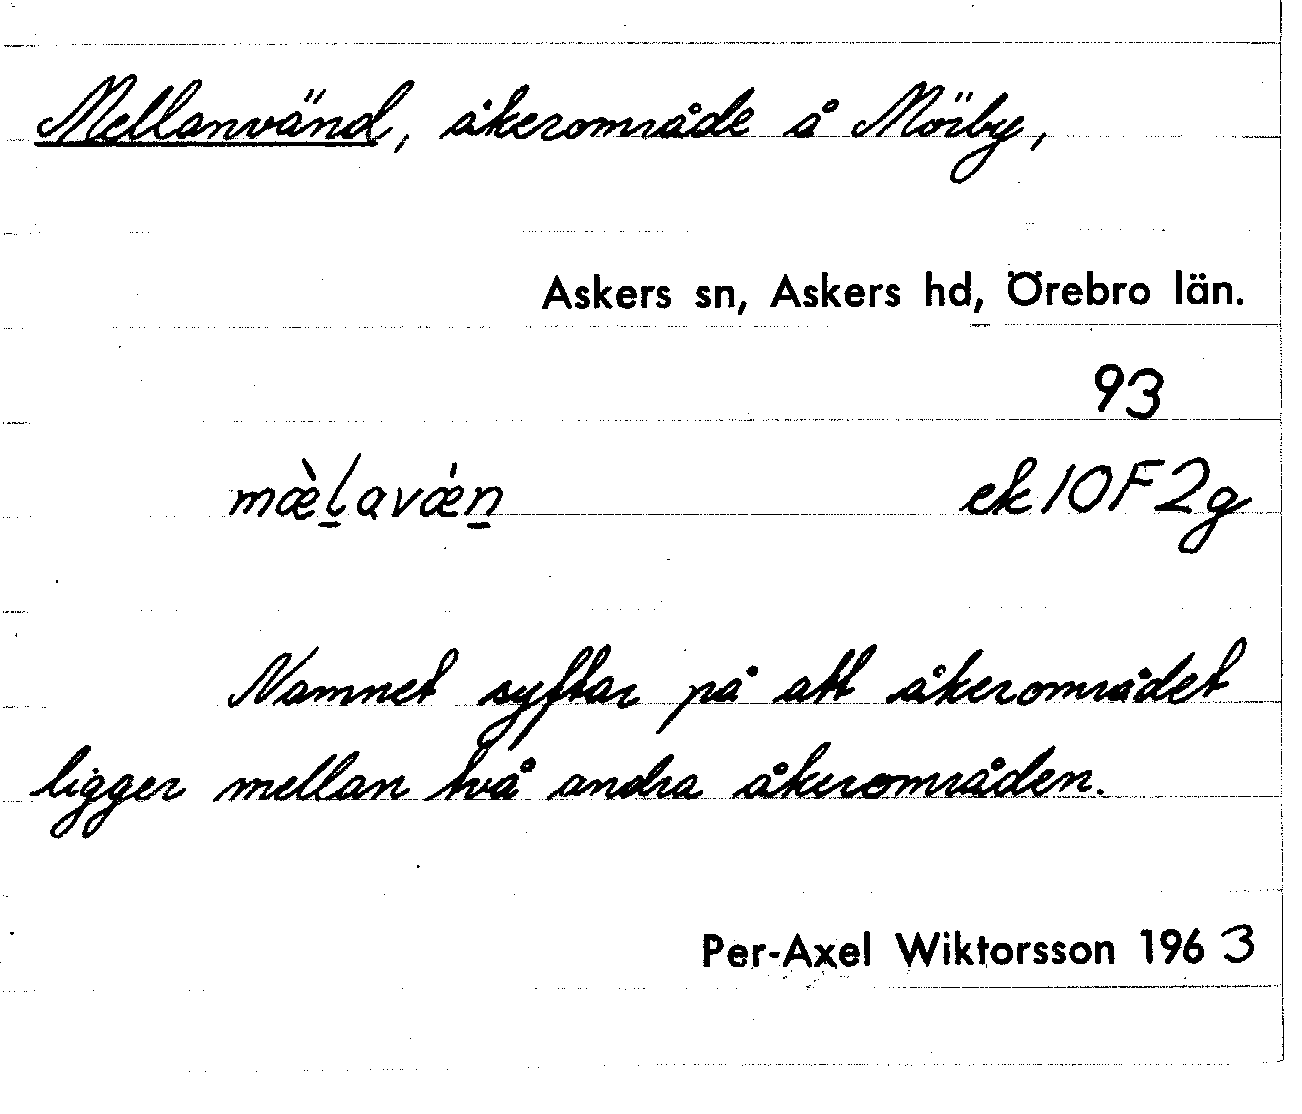 Mellanvänd, åkerområde å Mörby,
Askers sn, Askers hd, Örebro län.
93
mæ̀l̲avǽn̲ ek 10F2g
Namnet syftar på att åkerområdet
ligger mellan två andra åkerområden.
Per-Axel Wiktorsson 1963